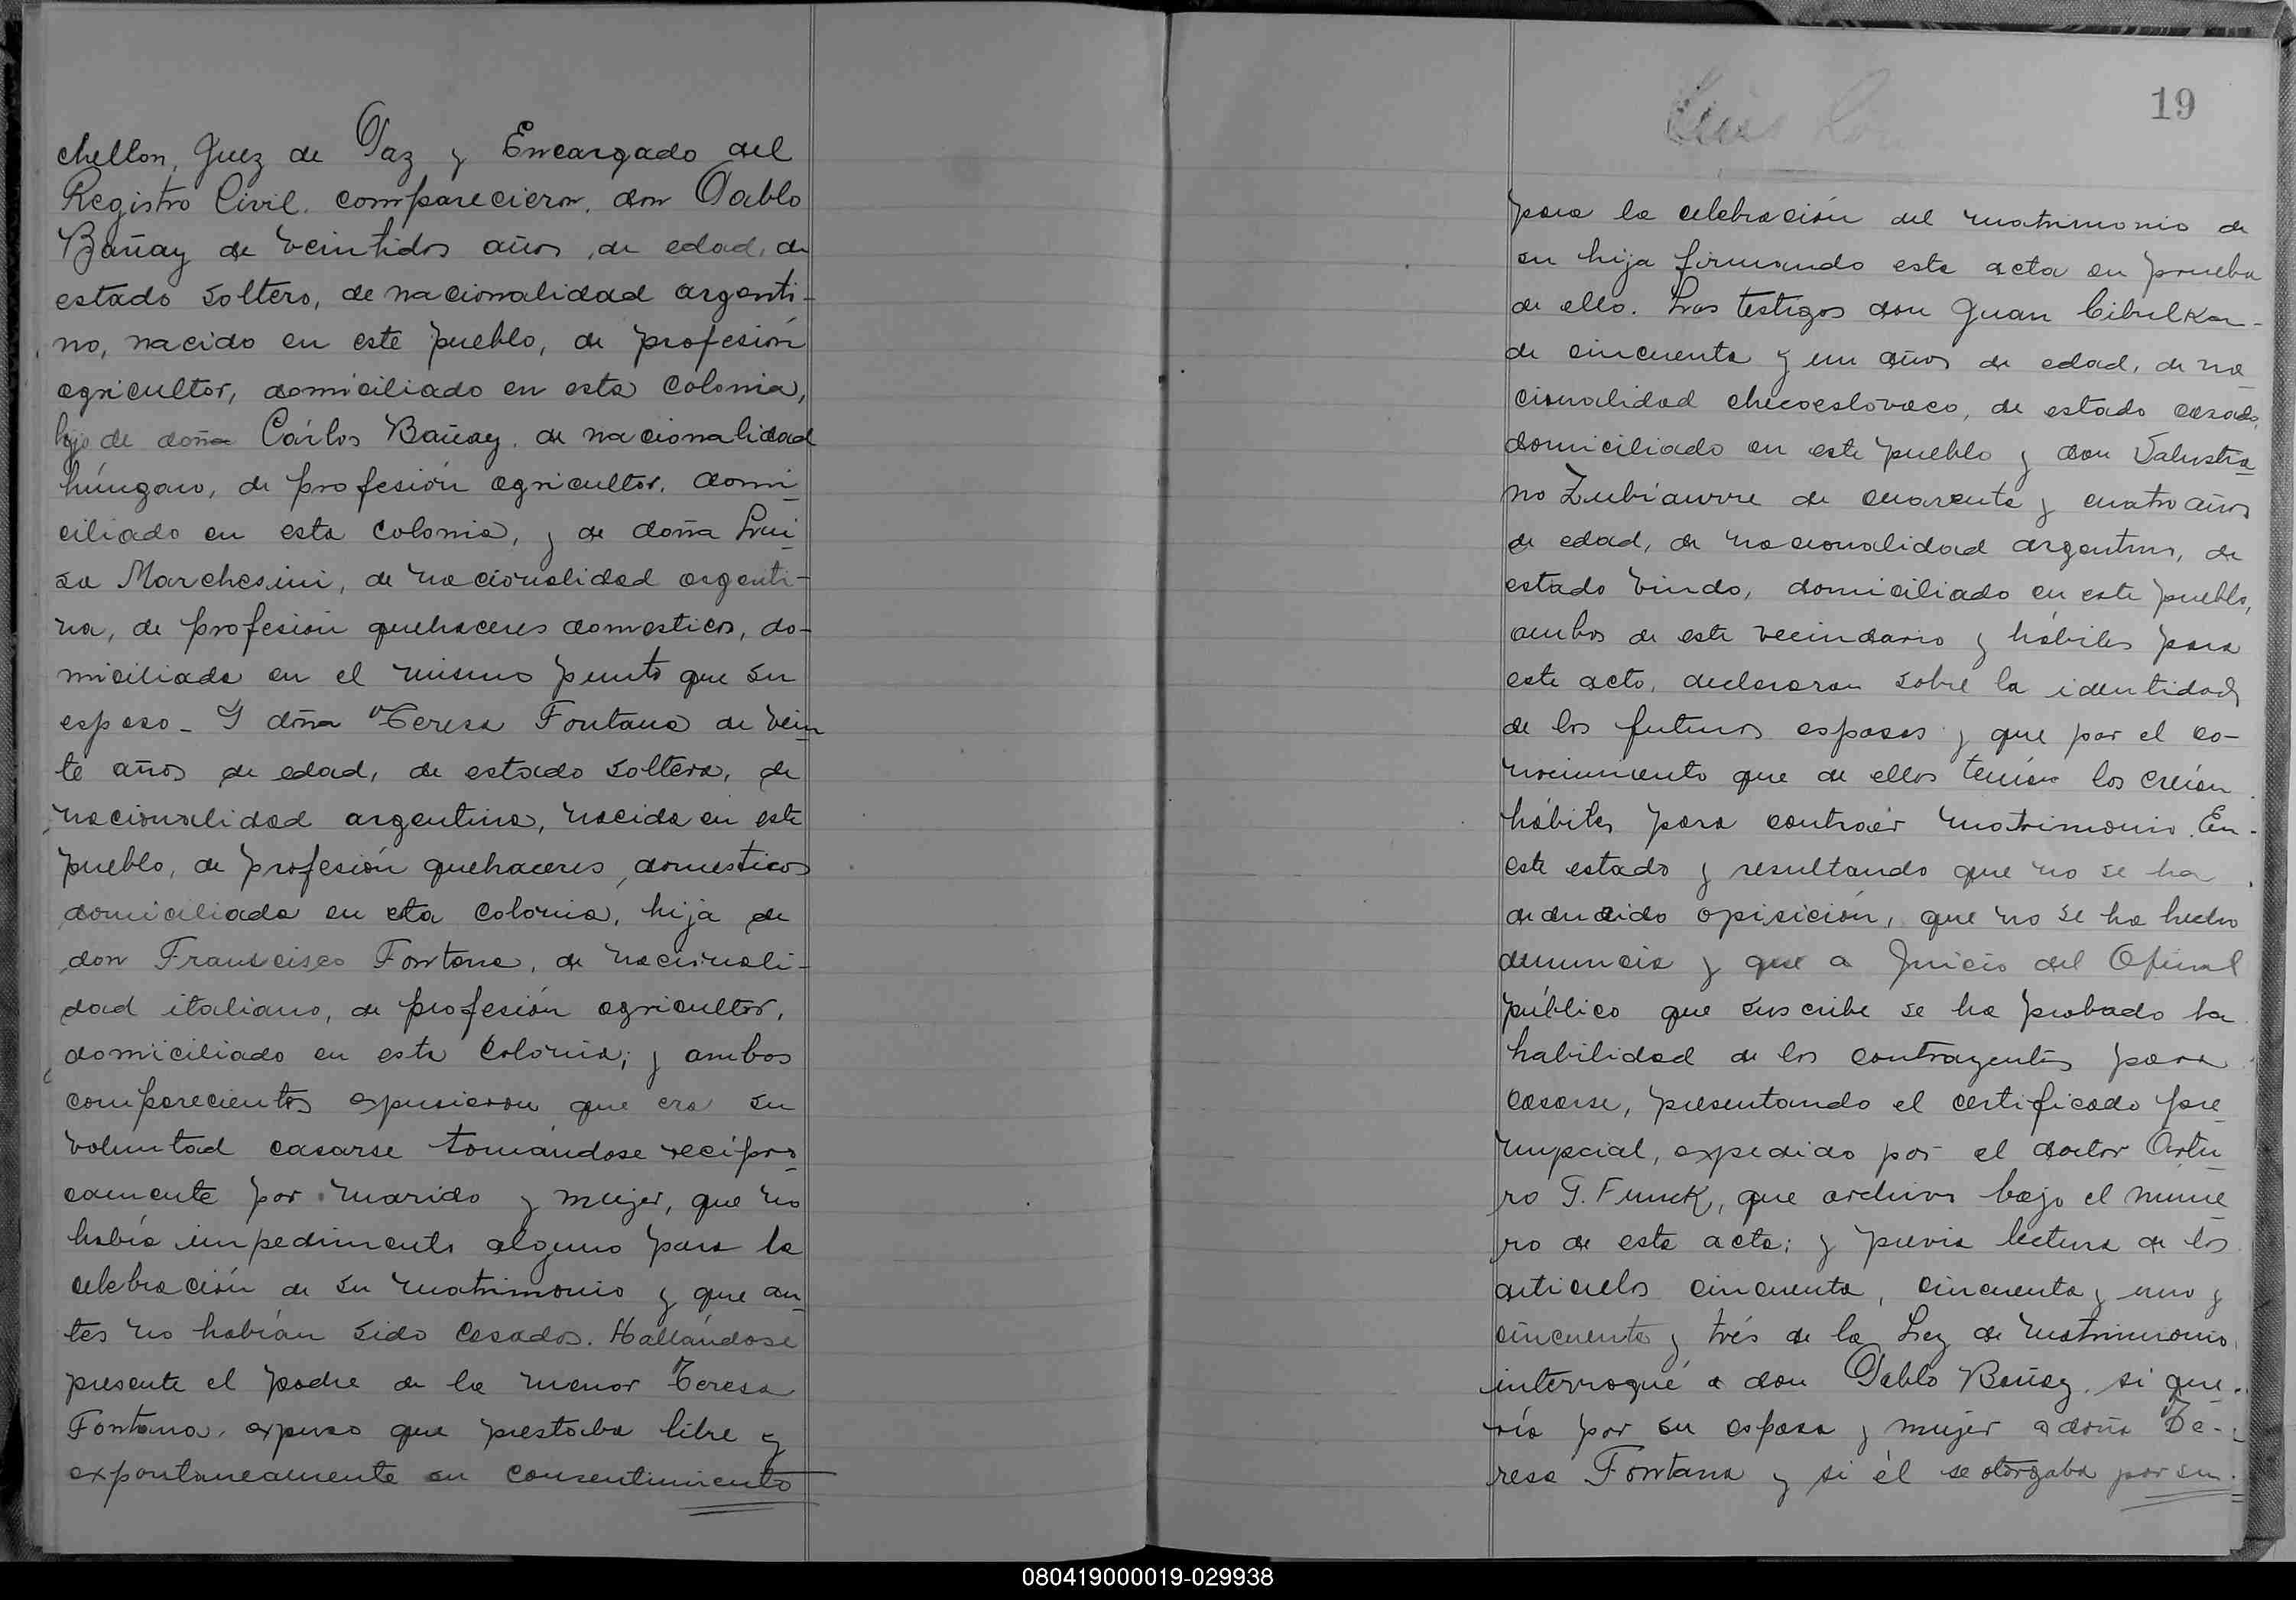 chellon, Juez de Paz y Encargado del
Registro Civil. comparecieron, don Pablo
Bañay de veintidos años, de edad, de
estado soltero, de nacionalidad argenti-
no, nacido en este pueblo, de profesión
agricultor, domiciliado en esta Colonia,
hijo de doña Cárlos Bañay, de nacionalidad
húngaro, de profesión agricultor, domi-
ciliado en esta Colonia, y de doña Lui-
sa Marchesini, de nacionalidad argenti-
na, de profesión quehaceres domesticos, do-
miciliada en el mismo punto que su
esposo - Y doña Teresa Fontana de vein-
te años de edad, de estado soltera, de
nacionalidad argentina, nacida en este
pueblo, de profesión quehaceres domesticos
domiciliada en esta Colonia, hija de
don Francisco Fontana, de nacionali-
dad italiano, de profesión agricultor,
domiciliado en esta Colonia; y ambos
comparecientes expusieron que era su
voluntad casarse tomándose recípro-
camente por marido y mujer, que no
había impedimento alguno para la
celebración de su matrimonio y que an-
tes no habían sido casados. Hallándose
presente el padre de la menor Teresa
Fontana, expuso que prestaba libre y
expontaneamente su consentimiento
19
para la celebración del matrimonio de
su hija firmando esta acta en prueba
de ello. Los testigos don Juan Cibulka-
de cincuenta y un años de edad, de na-
cionalidad checoeslovaco, de estado casado,
domiciliado en este pueblo y don Salustia-
no Zubiaurre de cuarenta y cuatro años
de edad, de nacionalidad argentino, de
estado viudo, domiciliado en este pueblo,
ambos de este vecindario y hábiles para
este acto, declararon sobre la identidad
de los futuros esposos y que por el co-
nocimiento que de ellos tenían los creían
hábiles para contraér matrimonio. En-
este estado y resultando que no se ha
deducido opisición, que no se ha hecho
denuncia y que a Juicio del Oficial
público que suscribe se ha probado la
habilidad de los contrayentes para
casarse, presentando el certificado pre-
nupcial, expedido por el doctor Artu-
ro G. Funck, que archivo bajo el núme-
ro de esta acta; y previa lectura de los
articulos cincuenta, cincuenta y uno y
cincuenta y trés de la Ley de Matrimonio,
interrogué a don Pablo Bañay, si que-
ría por su esposa y mujer a doña Te-
resa Fontana y si él se otorgaba por su
080419000019-029938